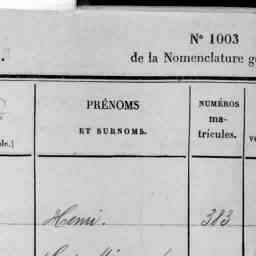 Nº 1003
de la Nomenclature
PRÉNOMS
ET SURNOMS.
NUMÉROS
ma-
tricules.
Henri. 383